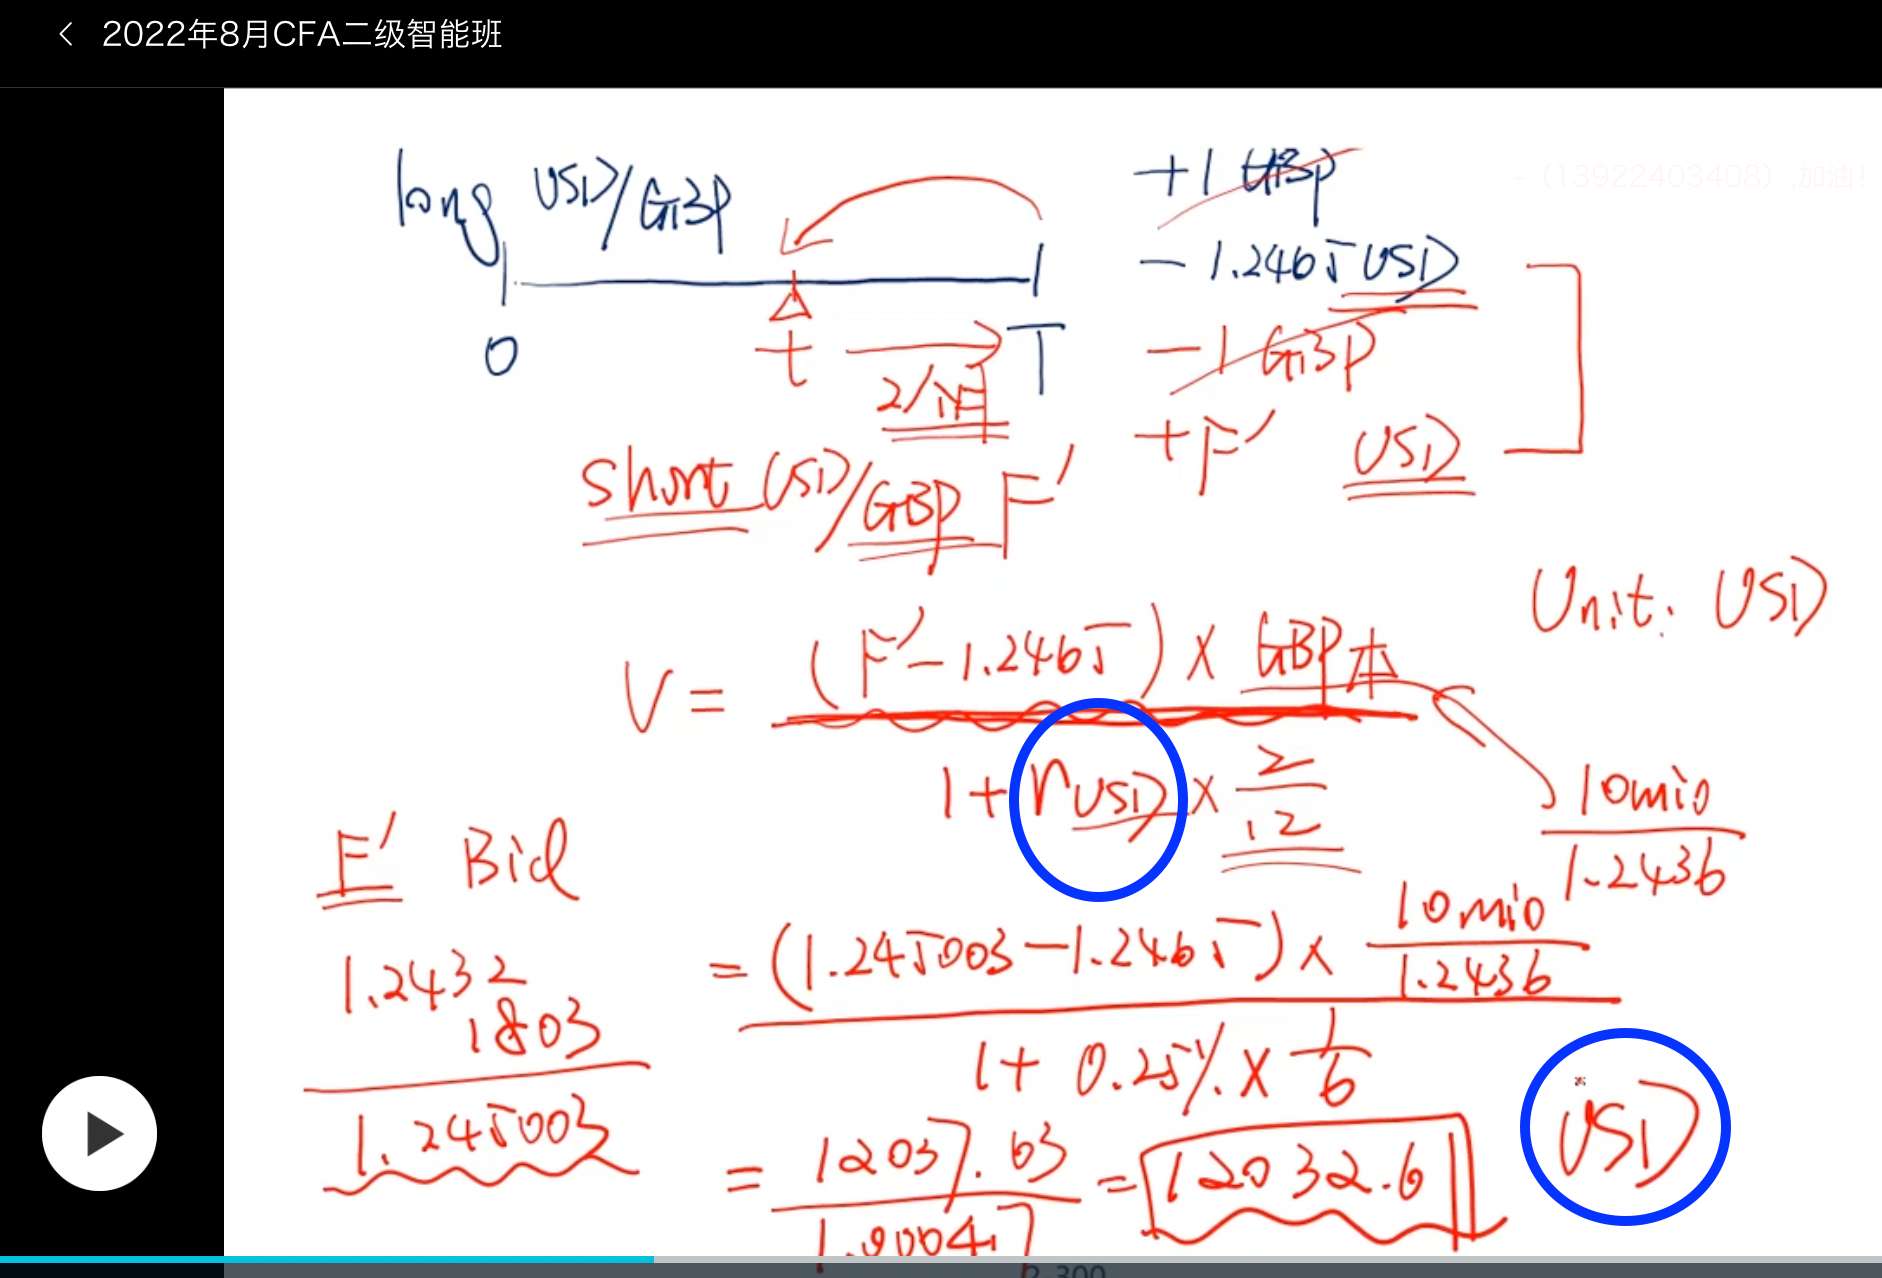 2022年8月CFA二级智能班
(13922403408) ,加油!
long USD/GBP
+1 GBP
-1.2465 USD
0 t T
2个月
-1 GBP
+F' USD
short USD/GBP F'
Unit: USD
V = (F'-1.2465) × GBP本
1+rUSD × 2/12
10mio
1.2436
F' Bid
1.2432
1803
1.245003
= (1.245003-1.2465) × 10mio/1.2436
1+ 0.25% × 1/6
USD
= 12037.63 = 12032.6
1.00041